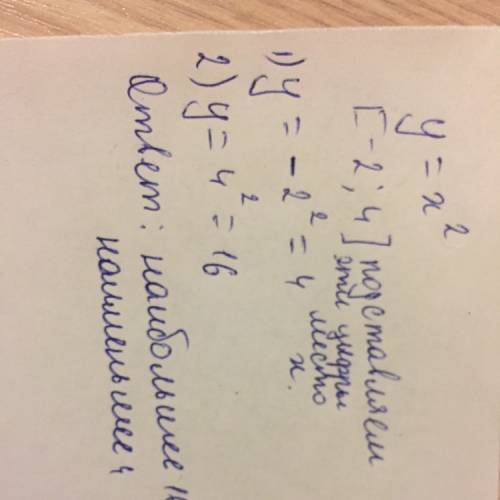 y = x²
[-2; 4] подставляем
эти цифры
место
х.
1) y = -2² = 4
2) y = 4² = 16
Ответ: наибольшее 16
наименьшее 4